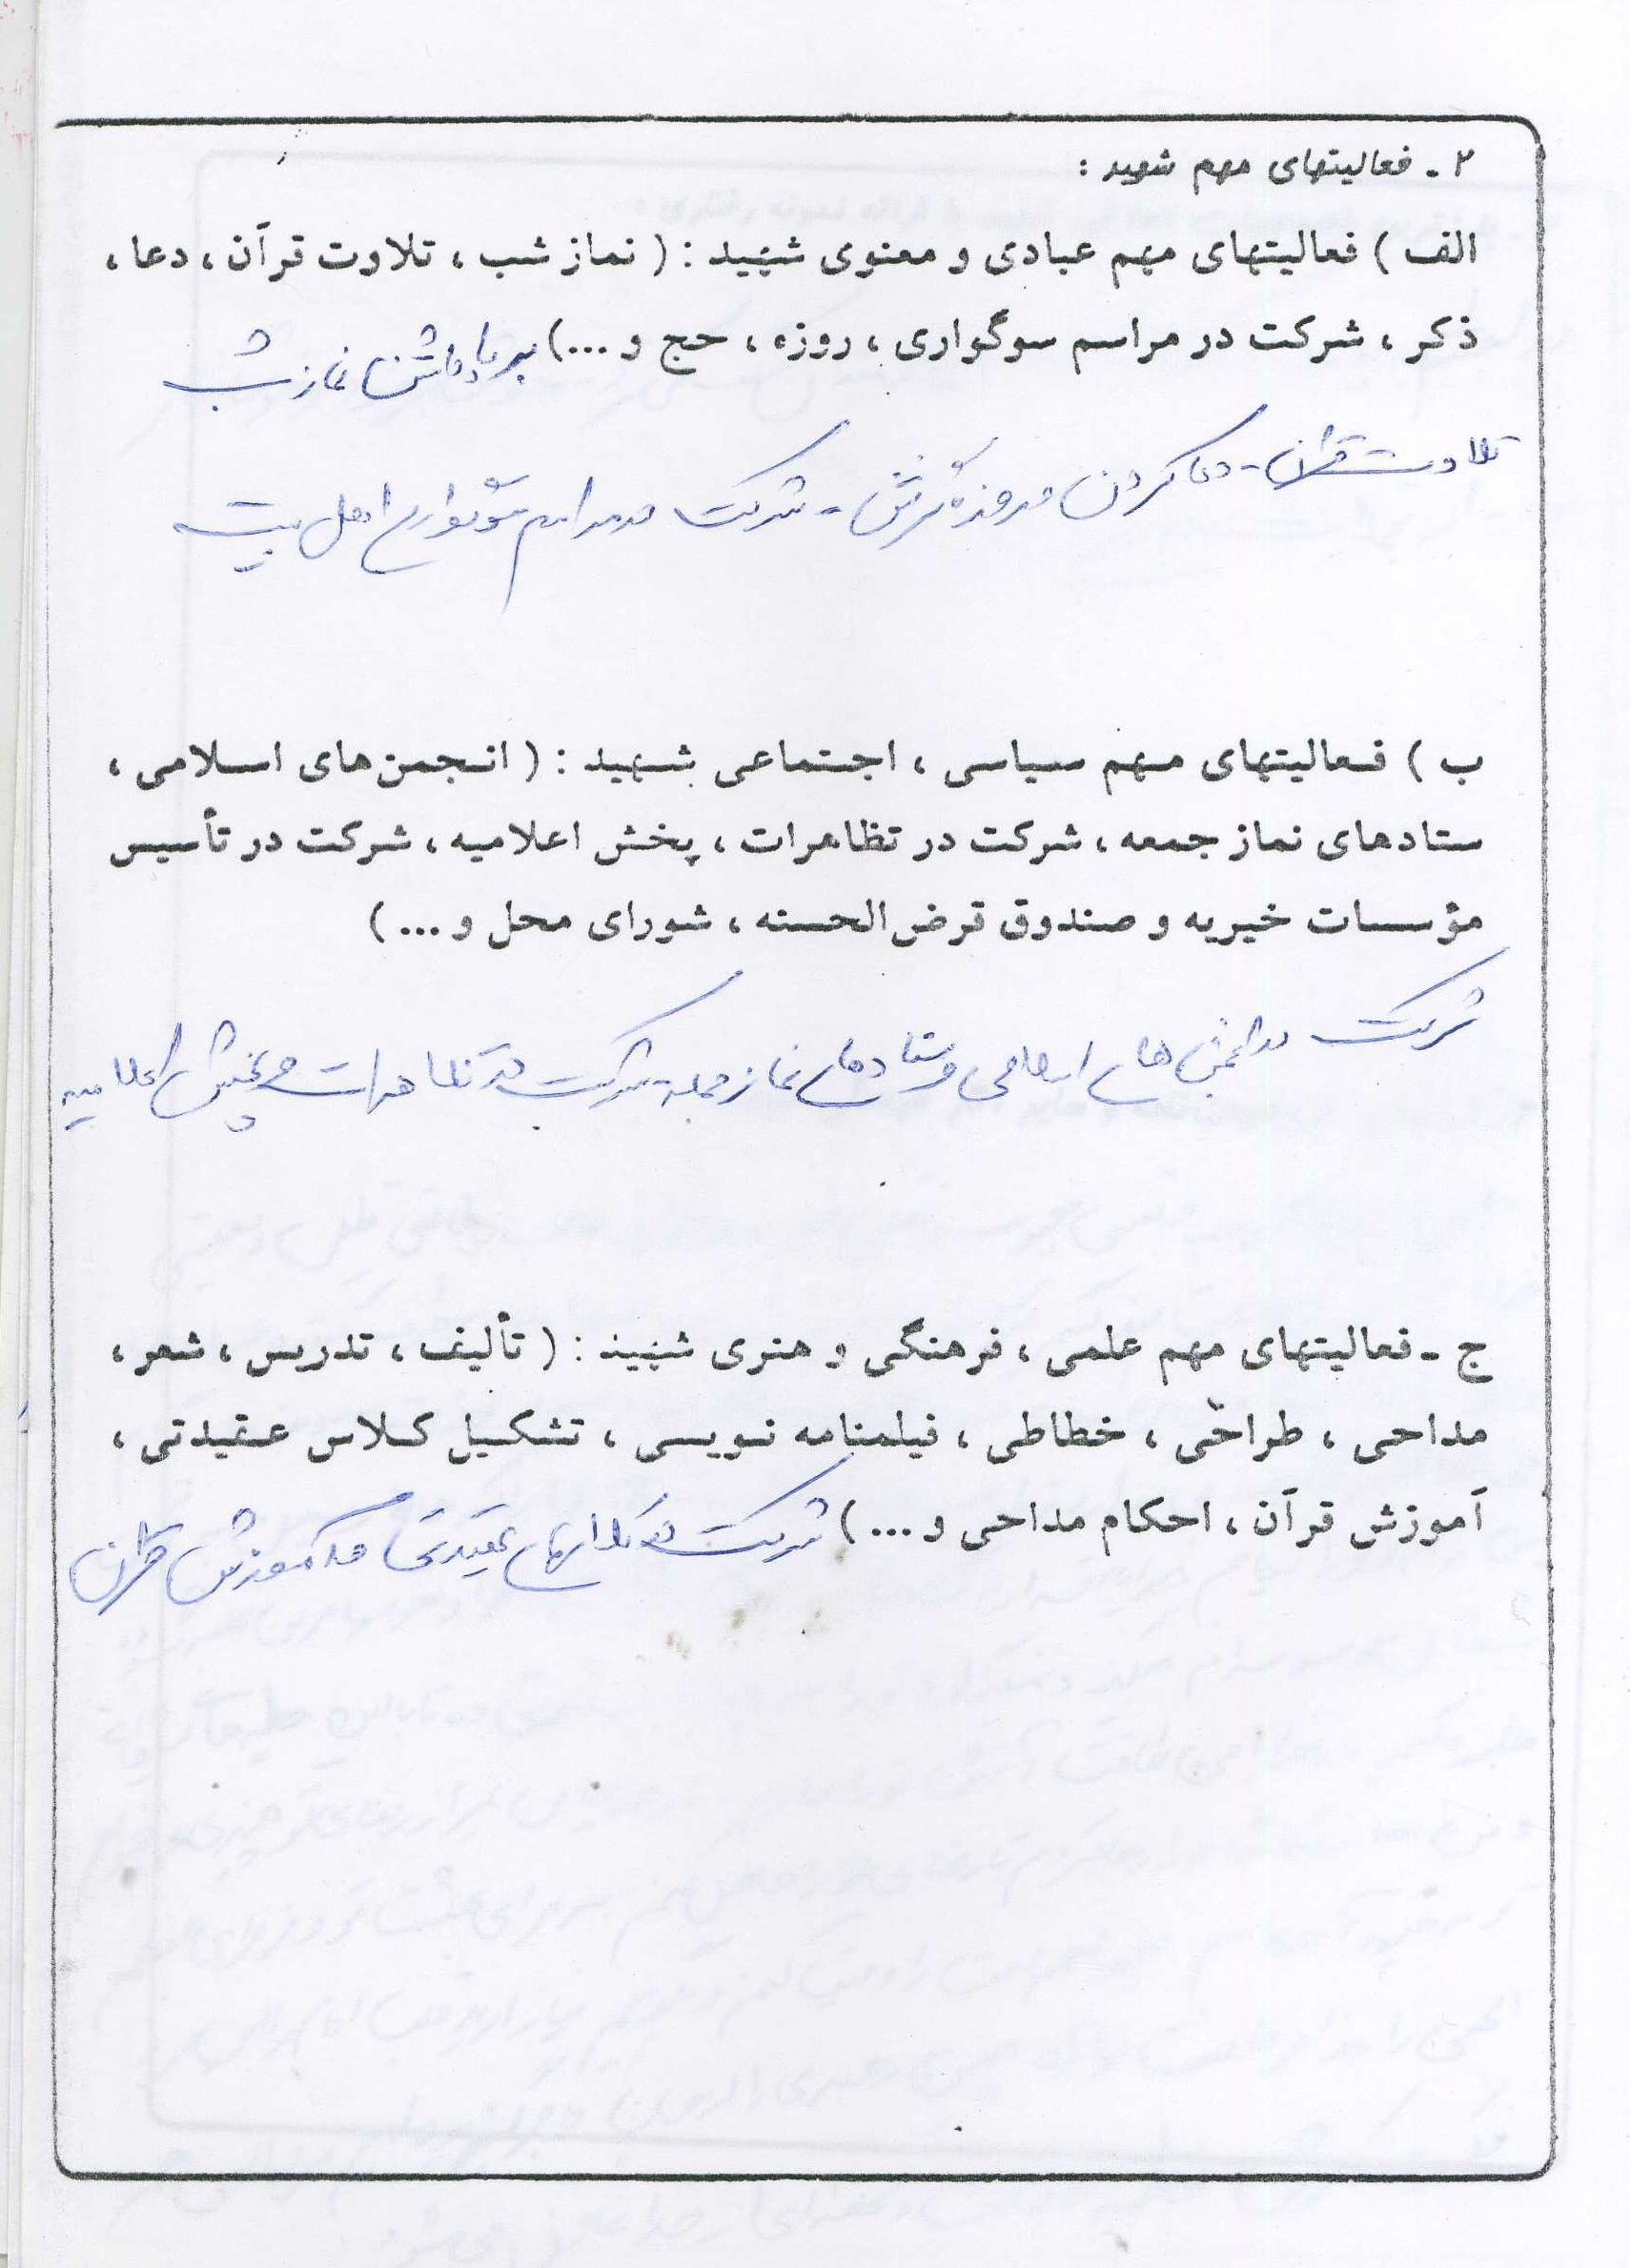 ۲ - فعالیتهای مهم شهید :
الف ) فعالیتهای مهم عبادی و معنوی شهید : ( نماز شب ، تلاوت قرآن ، دعا ،
ذکر ، شرکت در مراسم سوگواری ، روزه ، حج و ... ) برپا داشتن نماز شب
تلاوت قرآن - دعا کردن و روزه گرفتن - شرکت در مراسم سوگواری اهل بیت
ب ) فعالیتهای مهم سیاسی ، اجتماعی شهید : ( انجمن‌های اسلامی ،
ستادهای نماز جمعه ، شرکت در تظاهرات ، پخش اعلامیه ، شرکت در تأسیس
مؤسسات خیریه و صندوق قرض‌الحسنه ، شورای محل و ... )
شرکت در انجمن های اسلامی و ستادهای نماز جمعه - شرکت در تظاهرات و پخش اعلامیه
ج - فعالیتهای مهم علمی ، فرهنگی و هنری شهید : ( تألیف ، تدریس ، شعر ،
مداحی ، طراحی ، خطاطی ، فیلمنامه نویسی ، تشکیل کلاس عقیدتی ،
آموزش قرآن ، احکام مداحی و ... ) شرکت در کلاسهای عقیدتی و آموزش قرآن